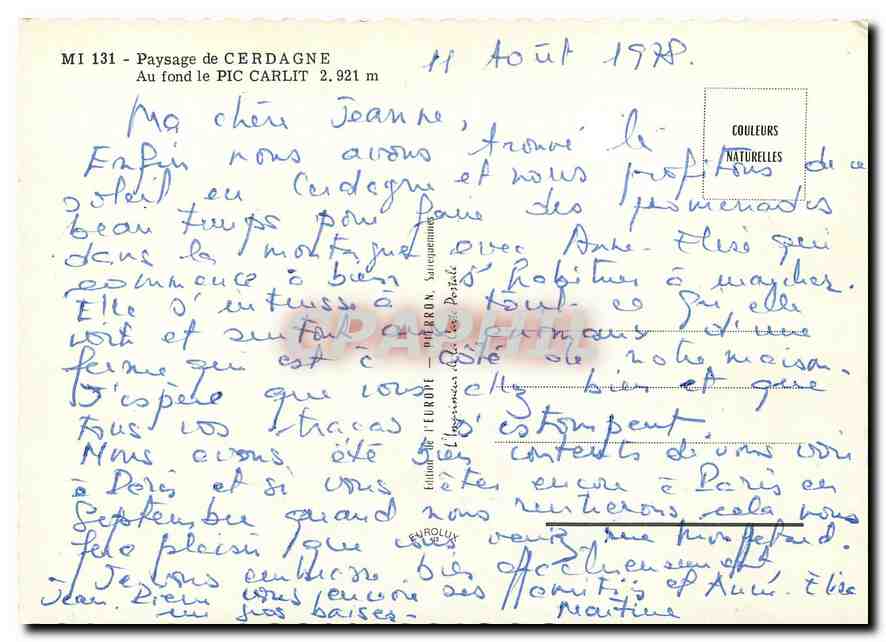 MI 131 - Paysage de CERDAGNE
Au fond le PIC CARLIT 2.921 m
11 Août 1978.
COULEURS
NATURELLES
Ma chère Jeanne,
Enfin nous avons trouvé le
soleil en Cerdagne et nous profitons de ce
beau temps pour faire des promenades
dans la montagne avec Anne-Elise qui
commence à bien s'habituer à marcher.
Elle s'intéresse à tout ce qu'elle
voit et surtout aux animaux d'une
ferme qui est à côté de notre maison.
J'espère que vous allez bien et que
tous vos tracas s'estompent.
Nous avons été bien contents de vous voir
à Paris et si vous êtes encore à Paris en
Septembre quand nous rentrerons cela nous
fera plaisir que vous veniez rue Monsieur.
Je vous embrasse bien affectueusement
Jean Pierre vous envoie ses amitiés et Anne-Elise
un gros baiser-
Martine
Edition de l'EUROPE — PIERRON, Sarreguemines
L'Imprimeur de la Carte Postale
EUROLUX
CPAPHIL